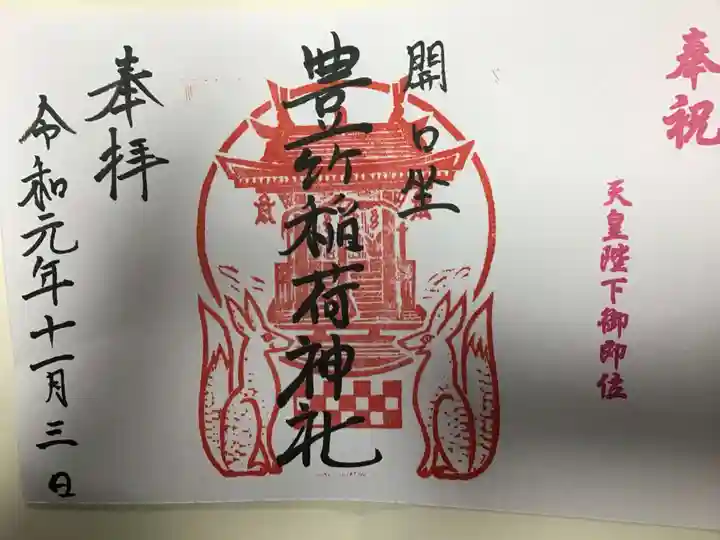 奉祝
天皇陛下御即位
開口坐
豊竹稲荷神社
奉拝
令和元年十一月三日